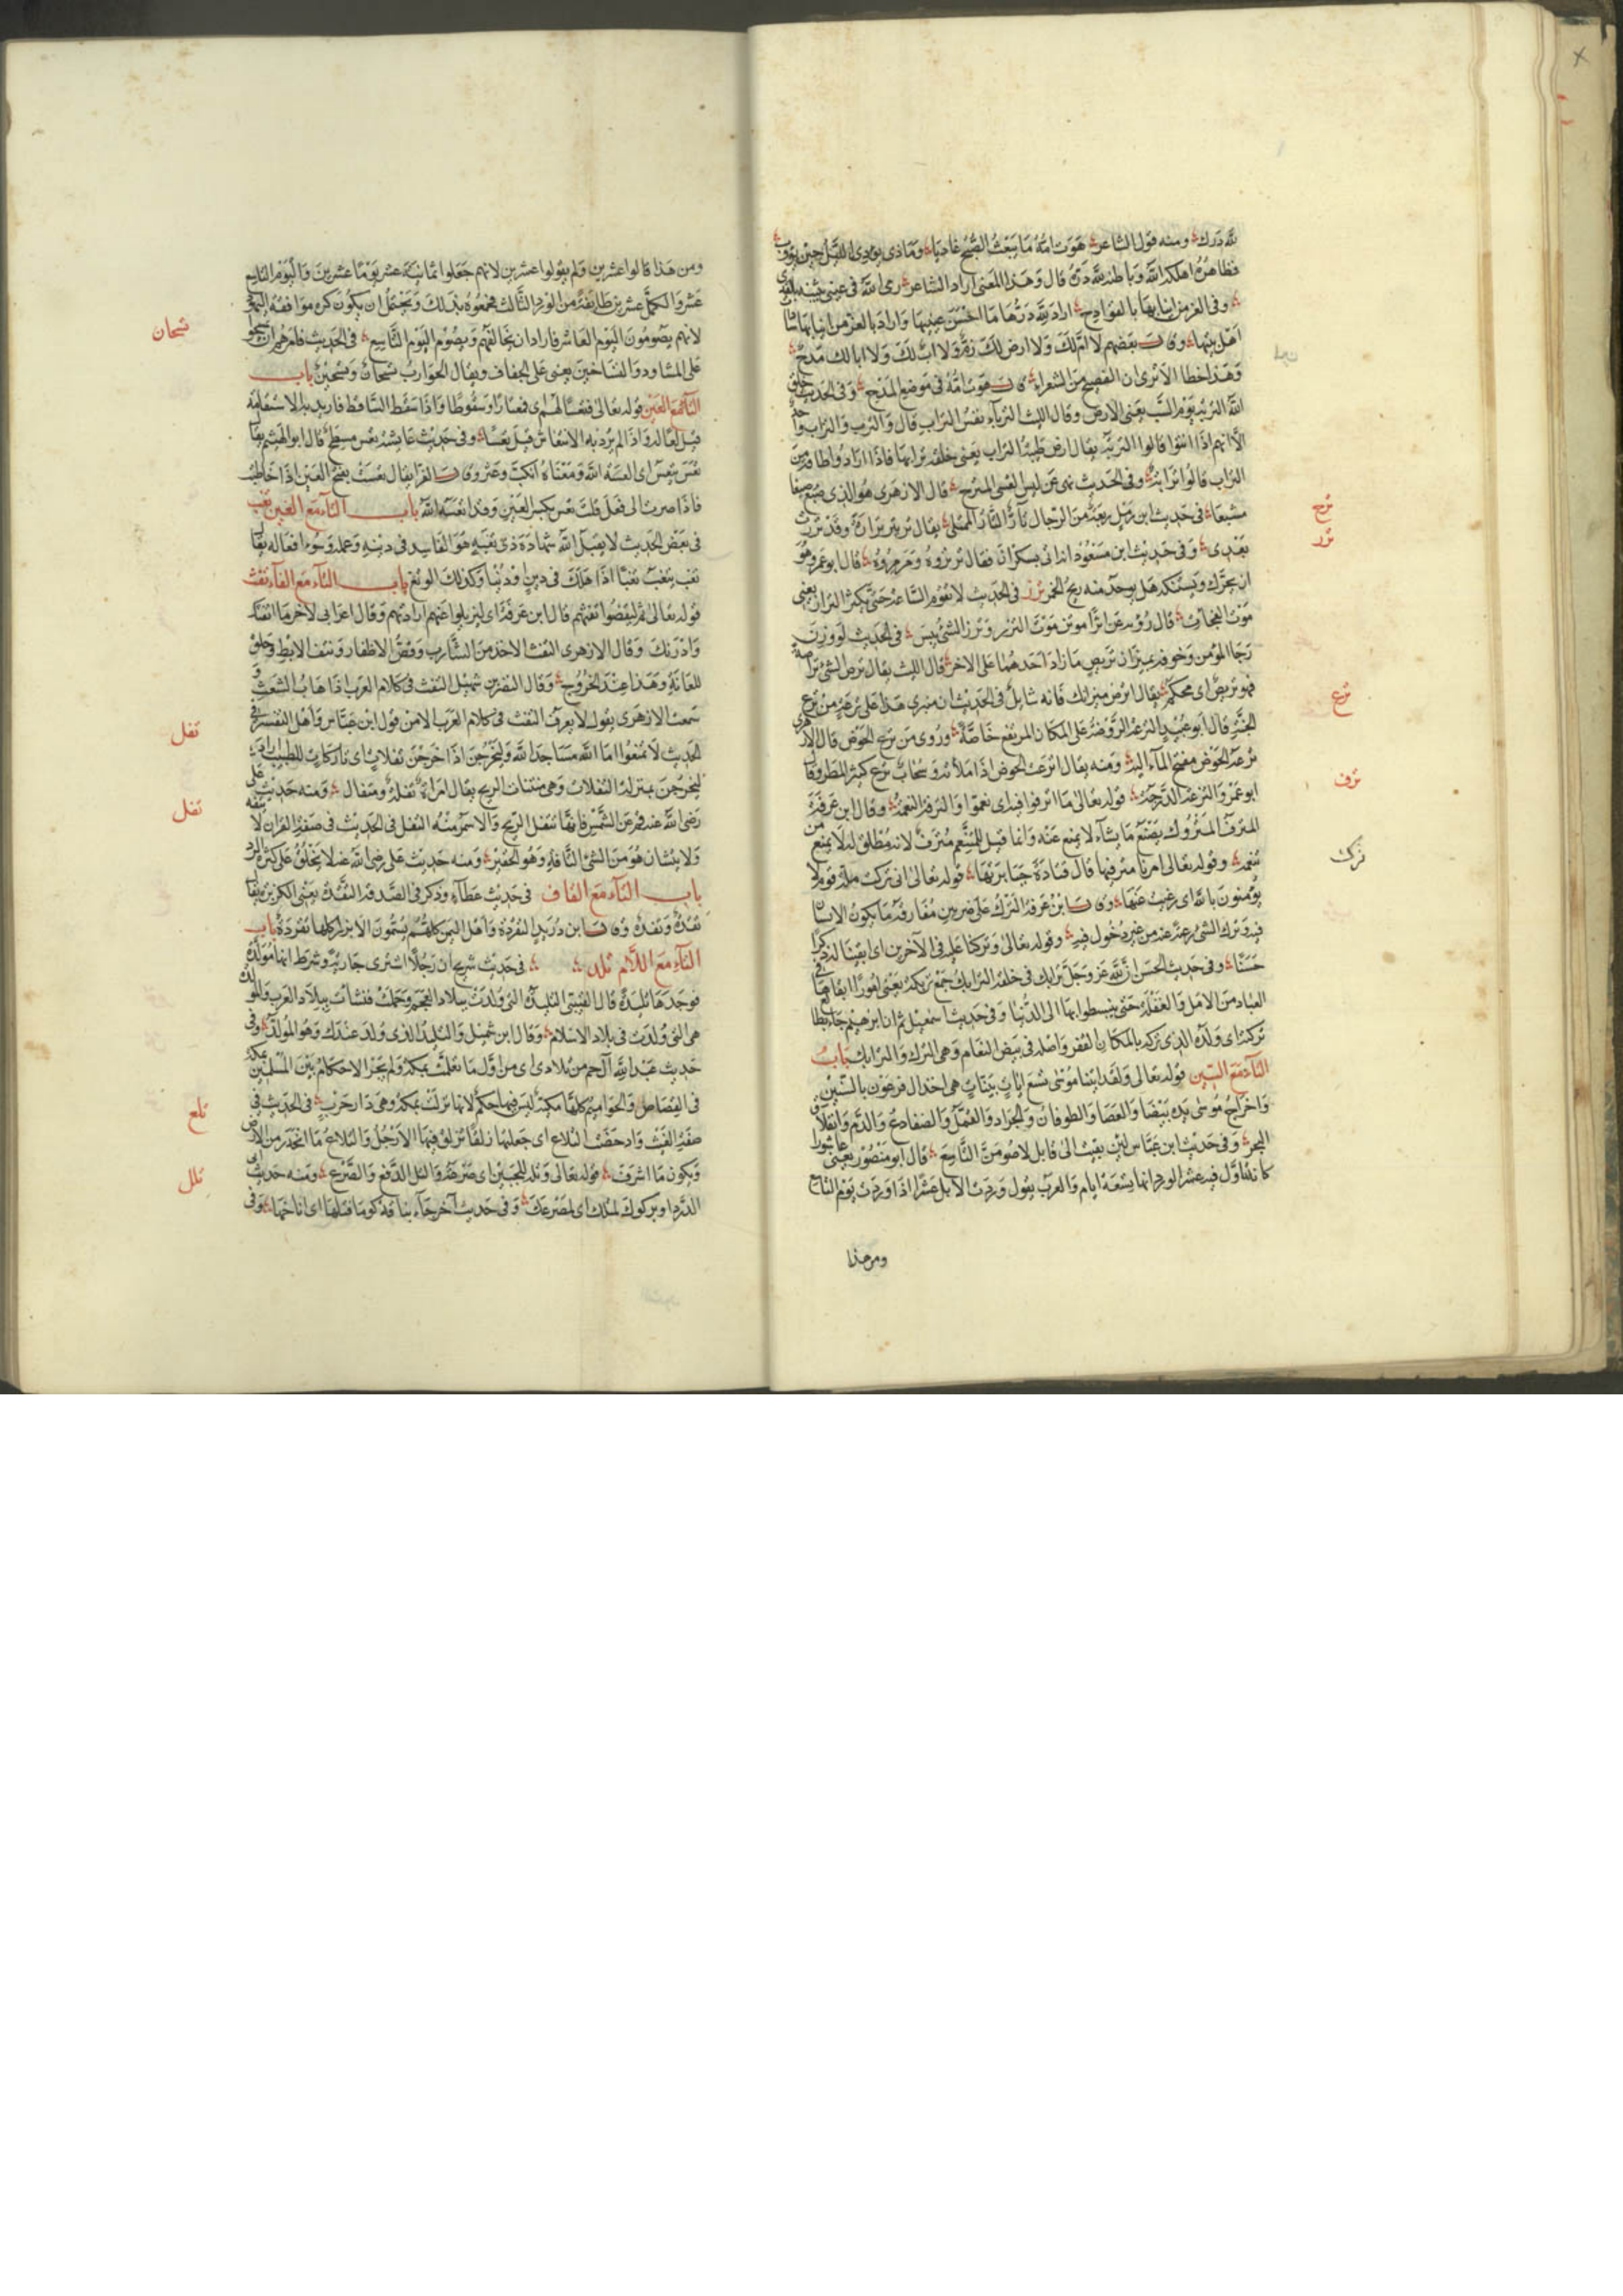 لله درك ومنه قول الشاعر هوت امه ما يبعث الصبح غاديا وماذى يودى الليل حين يؤوب
فظاهره اهلكه الله وباطنه لله دره قال وهذا المعنى اراد الشاعر رمى الله فى عينى بثينة بالقذى
وفى الغر من انيابها بالقوادح اراد لله درها ما احسن عينيها واراد بالغر من انيابها سادات
اهل بيتها وقال بعضهم لا ام لك ولا ارض لك ذم ولا اب لك ولا ابا لك مدح
وهذا خطا الا ترى ان الفصيح من الشعراء قال هوت امه فى موضع المدح وفى الحديث خلق
الله التربة يوم السبت يعنى الارض وقال الليث الترباء نفس التراب قال والترب والتراب واحد
الا انهم اذا انثوا قالوا التربة يقال ارض طيبة التراب يعنى خلقة ترابها فاذا ارادوا طاقة من
التراب قالوا ترابة وفى الحديث نهى عن لبس القسى المترح قال الازهرى هو الذى صبغ صبغا
مشبعا فى حديث ابن زمل ربعة من الرجال تار التار الممتلى يقال تر يتر ترارة وقد تررت
بعدى وفى حديث ابن مسعود اندانى بسكران فقال ترتروه ومزمزوه قال ابو عمرو هو
ان يحرك ويستنكه هل يوجد منه ريح الخمر ترز فى الحديث لا تقوم الساعة حتى يكثر التراز يعنى
موت الفجاءة
رجا المؤمن وخوفه بميزان تريص ما زاد احدهما على الاخر قال الليث يقال ترص الشئ تراصة
فهو تريص اى محكم يقال اترص ميزانك فانه شايل فى الحديث ان منبرى هذا على ترعة من ترع
الجنة قال ابو عبيد الترعة الروضة على المكان المرتفع خاصة وروى من ترع الحوض قال الازهرى
ترعة الحوض مفتح الماء اليه ومنه يقال اترعت الحوض اذا ملأته وسحاب ترع كثير المطر وقال
ابو عمرو الترعة الدرجة قوله تعالى ما اترفوا فيه اى نعموا والترفه النعمة وقال ابن عرفة
المترف المتروك يصنع ما يشاء لا يمنع عنه وانما قيل للمتنعم مترف لانه مطلق له لا يمنع من
تنعمه وقوله تعالى امرنا مترفيها قال قتادة جبابرتها قوله تعالى انى تركت ملة قوم لا
يؤمنون بالله اى رغبت عنها وقال ابن عرفة الترك على ضربين مفارقة ما يكون الانسان
فيه وترك الشئ رغبة عنه من غير دخول فيه وقوله تعالى وتركنا عليه فى الآخرين اى ابقينا له ذكرا
حسنا وفى حديث الحسن ان لله عز وجل ترايك فى خلقه الترايك جمع تريكة يعنى امورا ابقاها فى
العباد من الامل والغفلة حتى ينبسطوا بها الى الدنيا وفى حديث اسمعيل ثم ان ابرهيم جاء يطالع
تركته اى ولده الذى تركه بالمكان القفر واصله فى بيض النعام وهى الترك والترايك باب
التاء مع السين قوله تعالى ولقد اتينا موسى تسع ايات بينات هى اخذ ال فرعون بالسنين
واخراج موسى يده بيضا والعصا والطوفان والجراد والقمل والضفادع والدم وانفلاق
البحر وفى حديث ابن عباس لئن بقيت الى قابل لاصومن التاسع قال ابو منصور يعنى عاشورا
كانه تاول فيه عشر الورد انها تسعة ايام والعرب يقول وردت الابل عشرا اذا وردت يوم التاسع
ومن هذا
ترح
ترر
ترع
ترف
ترك
ومن هذا قالوا عشرين ولم يقولوا عشرين لانهم جعلوا ثمانية عشر يوما عشرين واليوم التاسع
عشر والمكمل عشرين طايفة من الورد الثالث فجمعوه بذلك ويحتمل ان يكون كره موافقة اليهود
لانهم يصومون اليوم العاشر فاراد ان يخالفهم ويصوم اليوم التاسع فى الحديث فامرهم ان يمسحوا
على المشاوذ والتساخين يعنى على الخفاف ويقال الجوارب تسخان وتسخين باب
التاء مع العين قوله تعالى فتعسا لهم اى فعثارا وسقوطا واذا سقط الساقط فاريد به الاستقامة
قيل لعا له واذا لم يرد به الانتعاش قيل تعسا وفى حديث عايشة تعس مسطح قال ابو الهيثم يقال
تعس يتعس اى اتعسه الله ومعناه انكب وعثر وقال الفرا يقال تعست بفتح العين اذا خاطبت
فاذا صرت الى فعل قلت تعس بكسر العين وقد اتعسه الله باب التاء مع الغين تغب
فى بعض الحديث لا يقبل الله شهادة ذى تغبة هو الفاسد فى دينه وعمله وسوء افعاله يقال
تغب يتغب تغبا اذا هلك فى دين او دنيا وكذلك الوتغ باب التاء مع الفاء تفث
قوله تعالى ثم ليقضوا تفثهم قال ابن عرفة اى ليزيلوا عنهم ادرانهم وقال اعرابى لاخر ما اتفثك
وادرنك وقال الازهرى التفث الاخذ من الشارب وقص الاظفار ونتف الابط وحلق
العانة وهذا عند الخروج وقال النضر بن شميل التفث فى كلام العرب اذهاب الشعث و
سمعت الازهرى يقول لا يعرف التفث فى كلام العرب الا من قول ابن عباس واهل التفسير فى
الحديث لا تمنعوا اماء الله مساجد الله وليخرجن اذا خرجن تفلات اى تاركات للطيب اراد
ليخرجن بمنزلة التفلات وهى منتنات الريح يقال امراة تفلة ومتفال ومنه حديث على
رضى الله عنه قم عن الشمس فانها تتفل الريح والاسم منه التفل فى الحديث فى صفة القران لا يتفه
ولا يتشان هو من الشئ التافه وهو الحقير ومنه حديث على رضى الله عنه لا يخلق على كثرة الرد
باب التاء مع القاف فى حديث عطاء وذكر فى الصدقة التقدة يعنى الكزبرة يقال
تقدة وتقدة وقال ابن دريد التقردة واهل اليمن كلهم يسمون الابزار كلها تقردة باب
التاء مع اللام تلد فى حديث شريح ان رجلا اشترى جارية وشرط انها مولدة
فوجدها تليدة قال القتيبى التليدة التى ولدت ببلاد العجم وحملت فنشأت ببلاد العرب والمولدة
هى التى ولدت فى بلاد الاسلام وقال ابن شميل والتليد الذى ولد عندك وهو المولد وفى
حديث عبد الله آل حم من تلادى اى من اول ما تعلمت بمكة ولم يجر الاحكام بين المسلمين بمكة
فى القصاص والحواميم كلها مكية ليس فيها حكم لانها نزلت بمكة وهى دار حرب فى الحديث فى
صفة الغيث وادحضت التلاع اى جعلتها زلقا تزلق فيها الارجل والتلاع ما انحدر من الارض
ويكون ما اشرف قوله تعالى وتله للجبين اى صرعه والتل الدفع والصرع ومنه حديث ابى
الدرداء وتركوك لمتلك اى لمصرعك وفى حديث آخر جآء بناقة كوماء فتلها اى اناخها وفى
تسخان
تفل
تفل
تلع
تلل